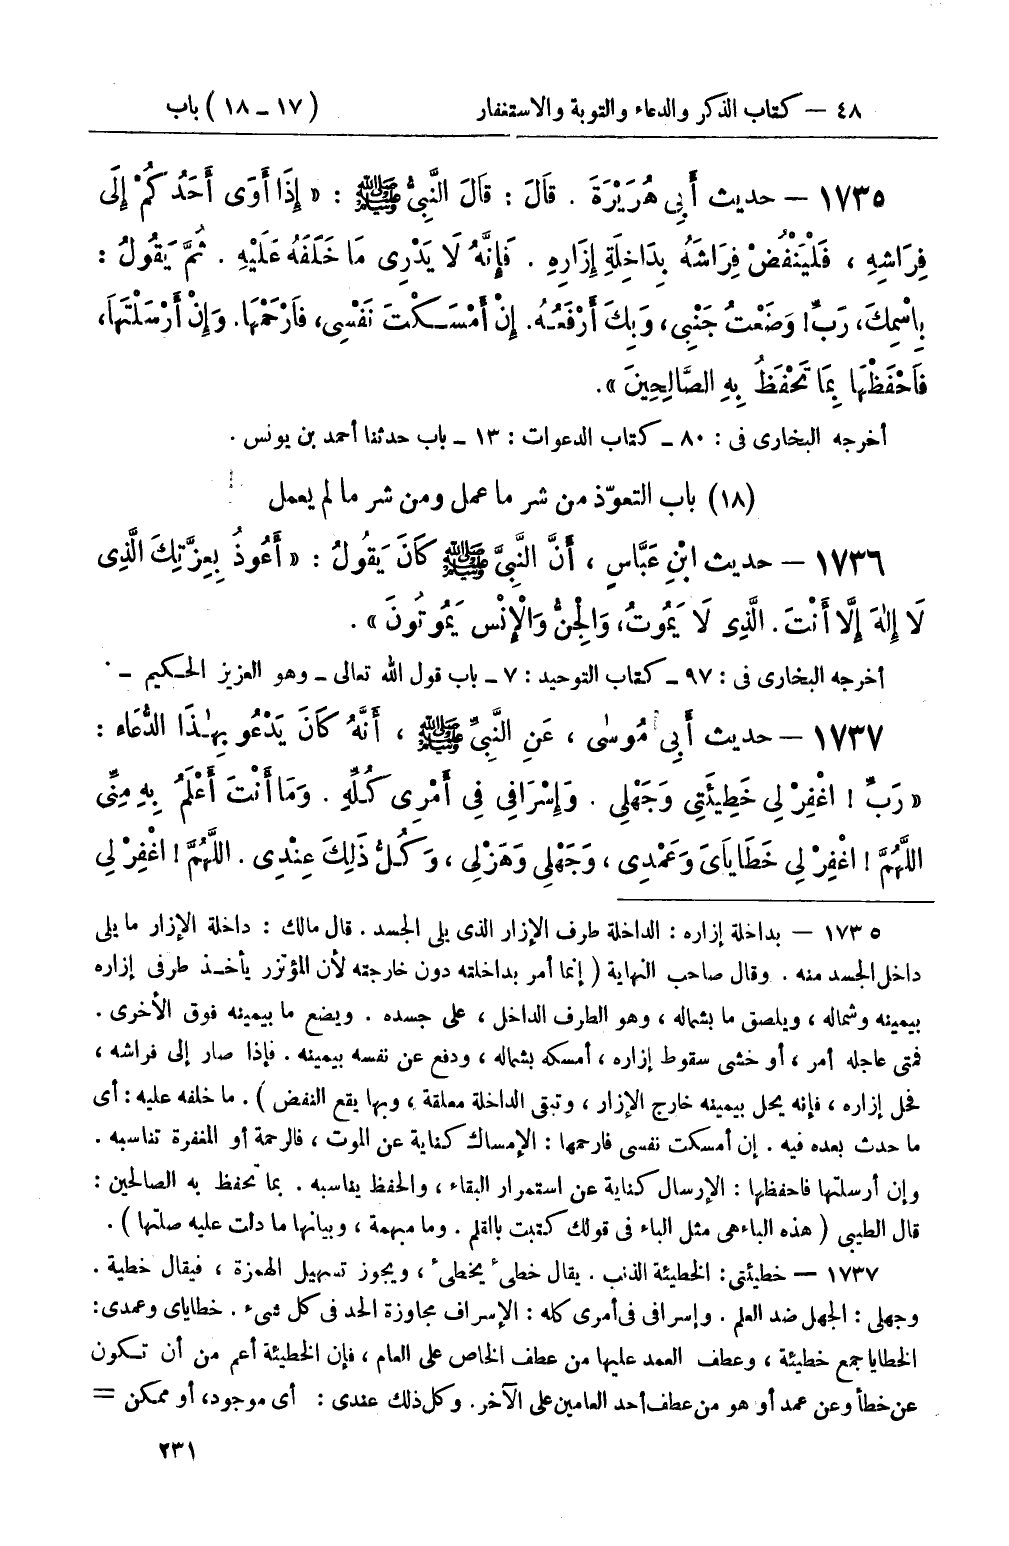 ٤٨ – كتاب الذكر والدعاء والتوبة والاستغفار (١٧ – ١٨) باب
١٧٣٥ – حديث أَبِي هُرَيْرَةَ . قَالَ : قَالَ النَّبِيُّ ﷺ : « إِذَا أَوَى أَحَدُكُمْ إِلَى
فِرَاشِهِ ، فَلْيَنْفُضْ فِرَاشَهُ بِدَاخِلَةِ إِزَارِهِ . فَإِنَّهُ لَا يَدْرِى مَا خَلَفَهُ عَلَيْهِ . ثُمَّ يَقُولُ :
بِاسْمِكَ، رَبِّ! وَضَعْتُ جَنْبِى، وَبِكَ أَرْفَعُهُ. إِنْ أَمْسَكْتَ نَفْسِى، فَارْحَمْهَا. وَإِنْ أَرْسَلْتَهَا،
فَاحْفَظْهَا بِمَا تَحْفَظُ بِهِ الصَّالِحِينَ ».
أخرجه البخارى فى : ٨٠ – كتاب الدعوات : ١٣ – باب حدثنا أحمد بن يونس .
(١٨) باب التعوّذ من شر ما عمل ومن شر ما لم يعمل
١٧٣٦ – حديث ابْنِ عَبَّاسٍ ، أَنَّ النَّبِيَّ ﷺ كَانَ يَقُولُ : « أَعُوذُ بِعِزَّتِكَ الَّذِى
لَا إِلٰهَ إِلَّا أَنْتَ. الَّذِى لَا يَمُوتُ، وَالْجِنُّ وَالْإِنْس يَمُوتُونَ » .
أخرجه البخارى فى : ٩٧ – كتاب التوحيد : ٧ – باب قول الله تعالى – وهو العزيز الحكيم – .
١٧٣٧ – حديث أَبِي مُوسٰى ، عَنِ النَّبِيِّ ﷺ ، أَنَّهُ كَانَ يَدْعُو بِهٰذَا الدُّعَاءِ :
« رَبِّ ! اغْفِرْ لِى خَطِيئَتِى وَجَهْلِى . وَإِسْرَافِى فِى أَمْرِى كُلِّهِ . وَمَا أَنْتَ أَعْلَمُ بِهِ مِنِّى
اللَّهُمَّ ! اغْفِرْ لِى خَطَايَاىَ وَعَمْدِى ، وَجَهْلِى وَهَزْلِى ، وَكُلُّ ذَلِكَ عِنْدِى . اللَّهُمَّ ! اغْفِرْ لِى
١٧٣٥ – بداخلة إزاره : الداخلة طرف الإزار الذى يلى الجسد . قال مالك : داخلة الإزار ما يلى
داخل الجسد منه . وقال صاحب النهاية ( إنما أمر بداخلته دون خارجته لأن المؤتزر يأخذ طرفى إزاره
بيمينه وشماله ، ويلصق ما بشماله ، وهو الطرف الداخل ، على جسده . ويضع ما بيمينه فوق الأخرى .
فمتى عاجله أمر ، أو خشى سقوط إزاره ، أمسكه بشماله ، ودفع عن نفسه بيمينه . فإذا صار إلى فراشه ،
فحل إزاره ، فإنه يحل بيمينه خارج الإزار ، وتبقى الداخلة معلقة ، وبها يقع النفض ) . ما خلفه عليه : أى
ما حدث بعده فيه . إن أمسكت نفسى فارحمها : الإمساك كناية عن الموت ، فالرحمة أو المغفرة تناسبه .
وإن أرسلتها فاحفظها : الإرسال كناية عن استمرار البقاء ، والحفظ يناسبه . بما تحفظ به الصالحين :
قال الطيبى ( هذه الباء هى مثل الباء فى قولك كتبت بالقلم . وما مبهمة ، وبيانها ما دلت عليه صلتها ) .
١٧٣٧ – خطيئتى : الخطيئة الذنب . يقال خطىء يخطىء ، ويجوز تسهيل الهمزة ، فيقال خطية .
وجهلى : الجهل ضد العلم . وإسرافى فى أمرى كله : الإسراف مجاوزة الحد فى كل شىء . خطاياى وعمدى :
الخطايا جمع خطيئة ، وعطف العمد عليها من عطف الخاص على العام ، فإن الخطيئة أعم من أن تكون
عن خطأ وعن عمد أو هو من عطف أحد العامين على الآخر. وكل ذلك عندى : أى موجود، أو ممكن =
٢٣١